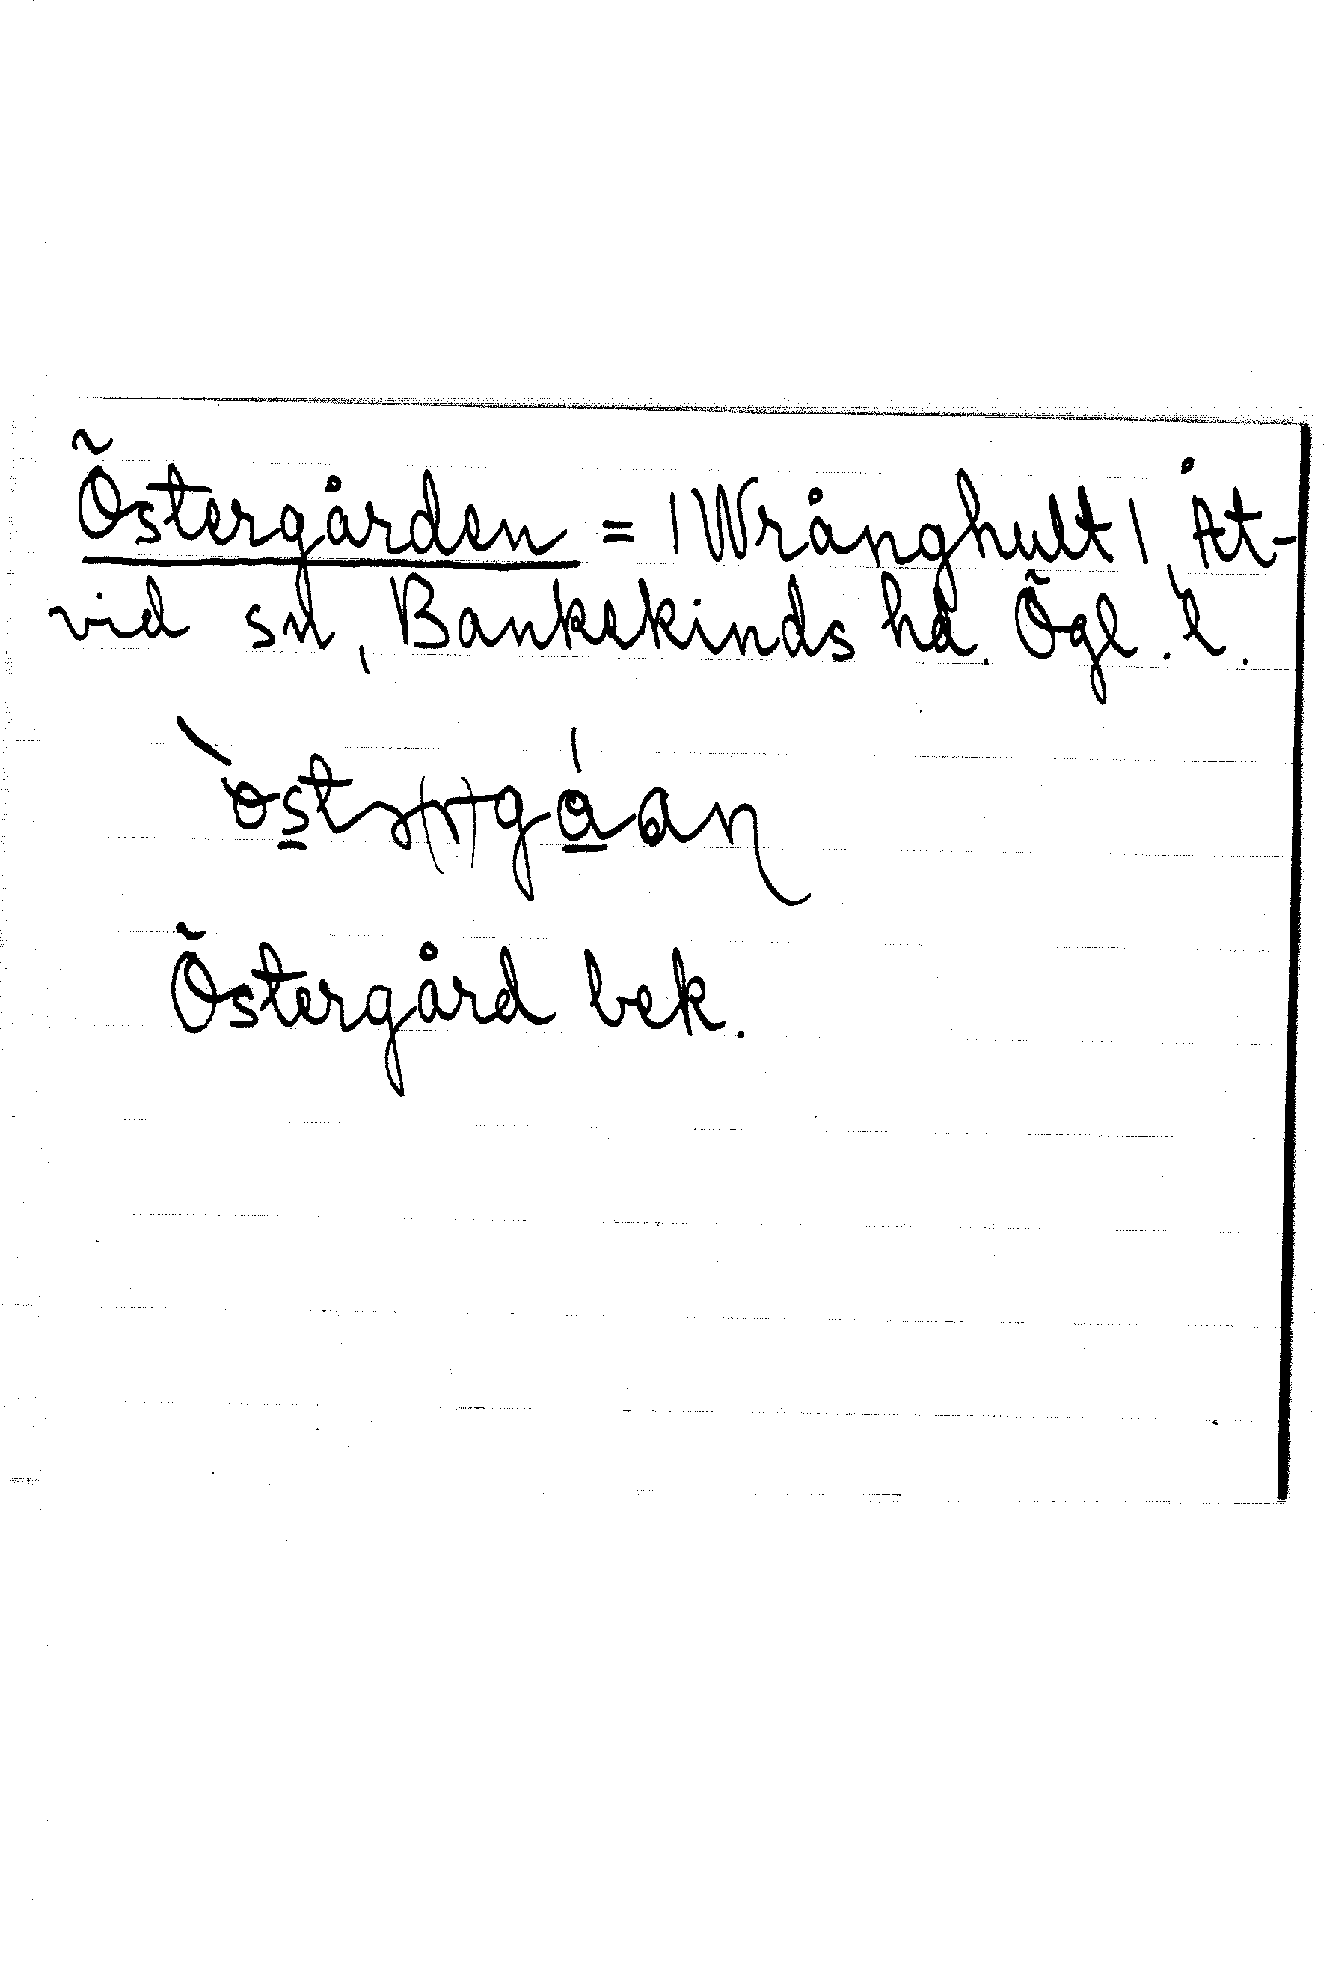 Östergården = |Wrånghult|, Åt-
vid sn, Bankekinds hd. Ögl. l.
Östergård bek.